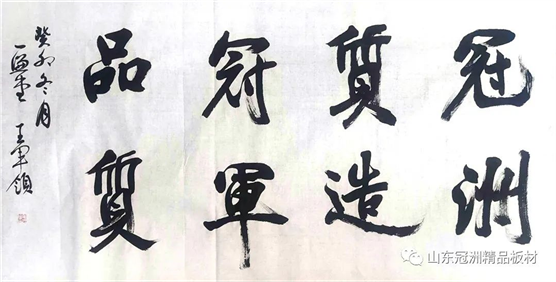 冠洲
質造
冠軍
品質
癸卯冬月
王軍領
山东冠洲精品板材